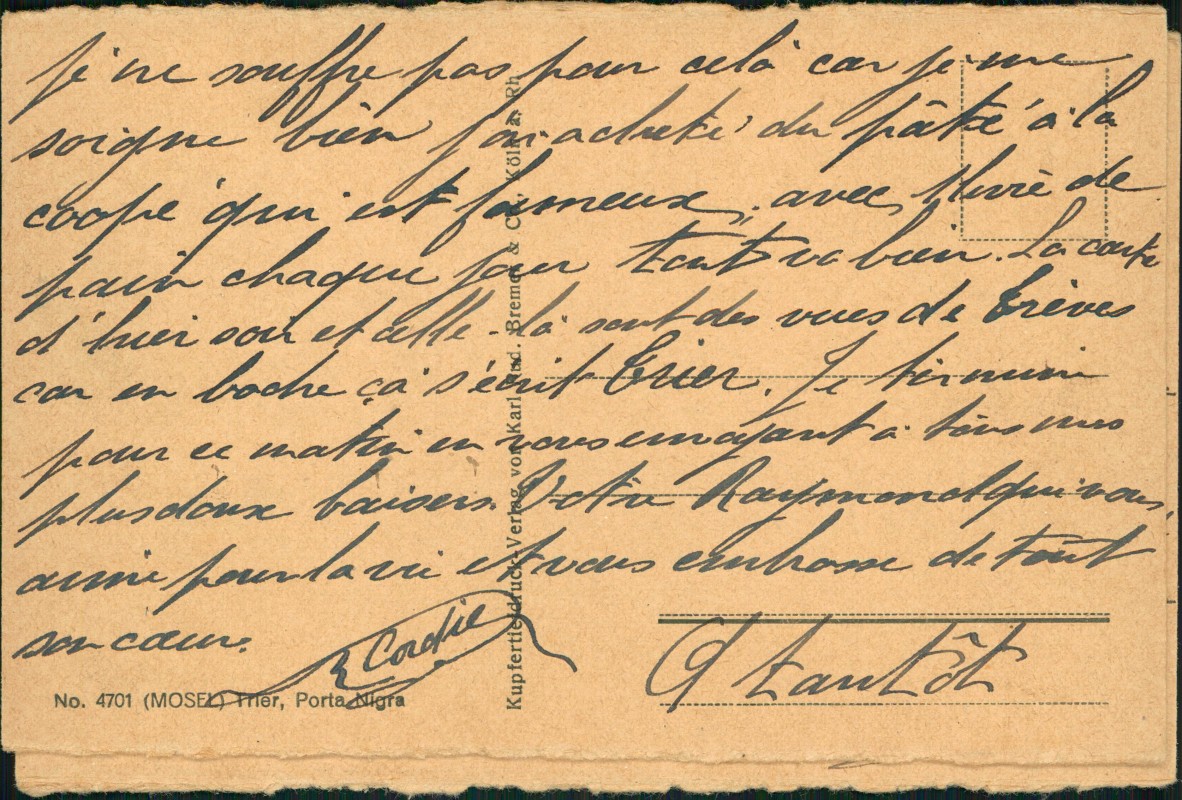 je ne souffre pas pour celà car je me
soigne bien j'ai acheté du pâté à la
coupe qui est fameux, avec 1 livre de
pain chaque jour tout va bien. La carte
d'hier soir et celle-là sont des vues de Trèves
car en boche çà s'écrit Trier. Je termine
pour ce matin en vous envoyant à tous mes
plus doux baisers. Votre Raymond qui vous
aime pour la vie et vous embrasse de tout
son cœur.
R Cordie
A tantôt
No. 4701 (MOSEL) Trier, Porta Nigra
Kupfertiefdruck-Verlag von Karl Rud. Bremer & Co., Köln a. Rh.